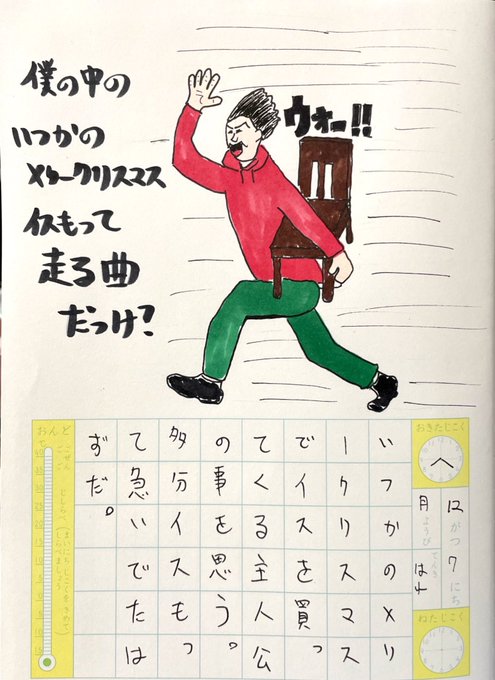 僕の中の
いつかの
メリークリスマス
イスもって
走る曲
だっけ?
ウォー!!
おきたじこく
12がつ7にち
月ようび
てんき はれ
ねたじこく
いつかのメリ
ークリスマス
でイスを買っ
てくる主人公
の事を思う。
多分イスもっ
て急いでたは
ずだ。
おんど
ごぜん
ごご
40
35
30
25
20
15
10
5
0
5
10
15